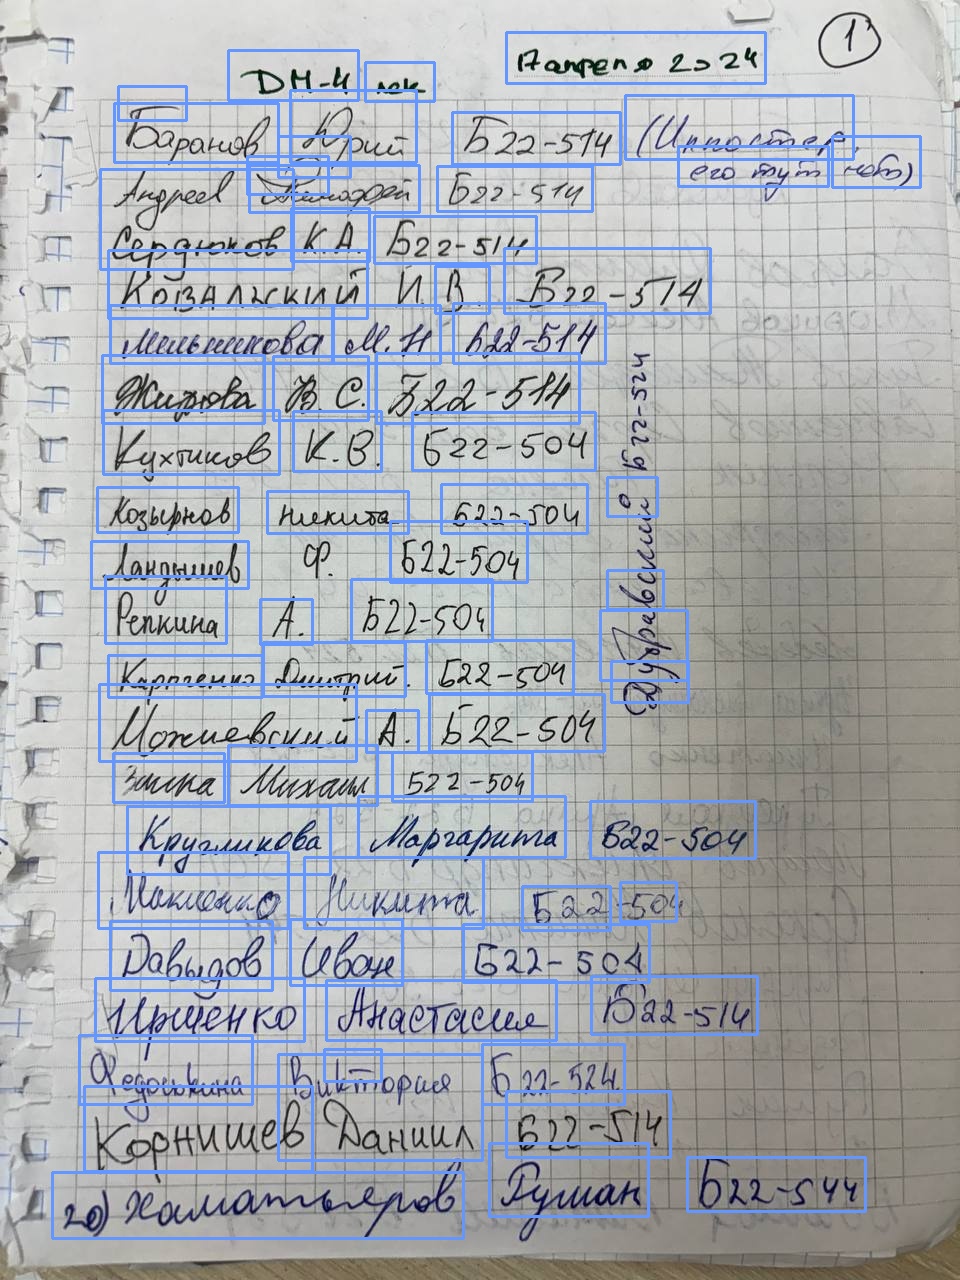 1
DM-4 лек. 17 апреля 2024
Баранов Юрий Б22-514 (Импостер,
его тут нет)
Андреев Тимофей Б22-514
Сердюков К.А. Б22-514
Ковальский И.В. Б22-514
Мельникова М.Н Б22-514
В.С. Б22-514
Кухтиков К.В. Б22-504
Козырнов Никита Б22-504
Ландышев Ф. Б22-504
Репкина А. Б22-504
Карпченко Дмитрий. Б22-504
Можиевский А. Б22-504
Заика Михаил Б22-504
Кругликова Маргарита Б22-504
Никита Б22-504
Давыдов Иван Б22-504
Иршенко Анастасия Б22-514
Федоськина Виктория Б22-524
Корнишев Даниил Б22-514
20) Хаматьяров Руслан Б22-544
Дубравский Б22-524